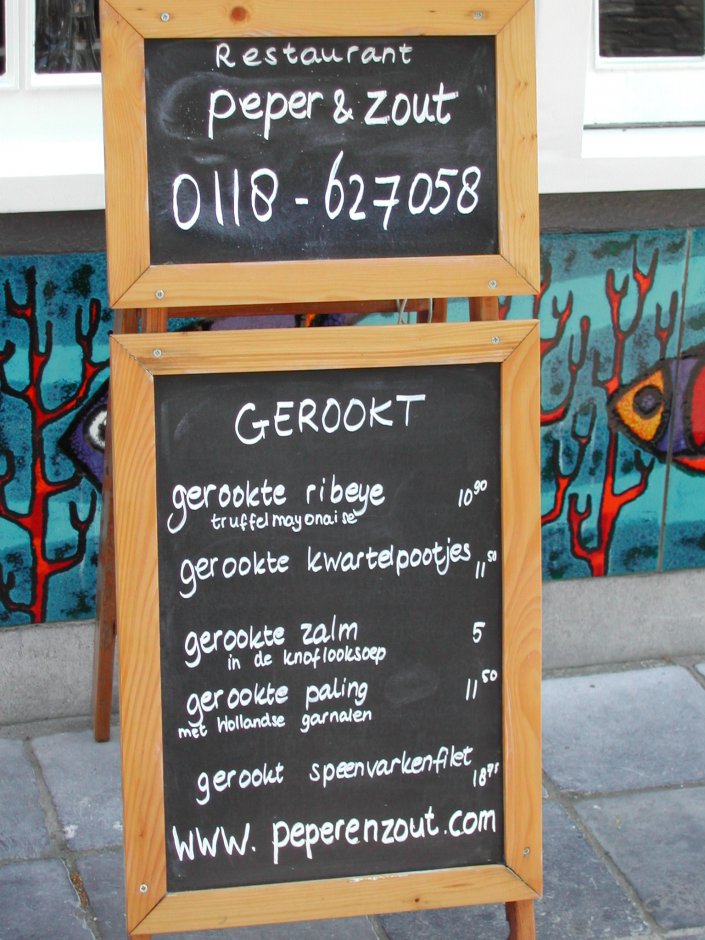 Restaurant
peper & zout
0118 - 627058
GEROOKT
gerookte ribeye 10 90
truffelmayonaise
gerookte kwartelpootjes 11 50
gerookte zalm 5
in de knoflooksoep
gerookte paling 11 50
met Hollandse garnalen
gerookt speenvarkenfilet 18 75
www.peperenzout.com